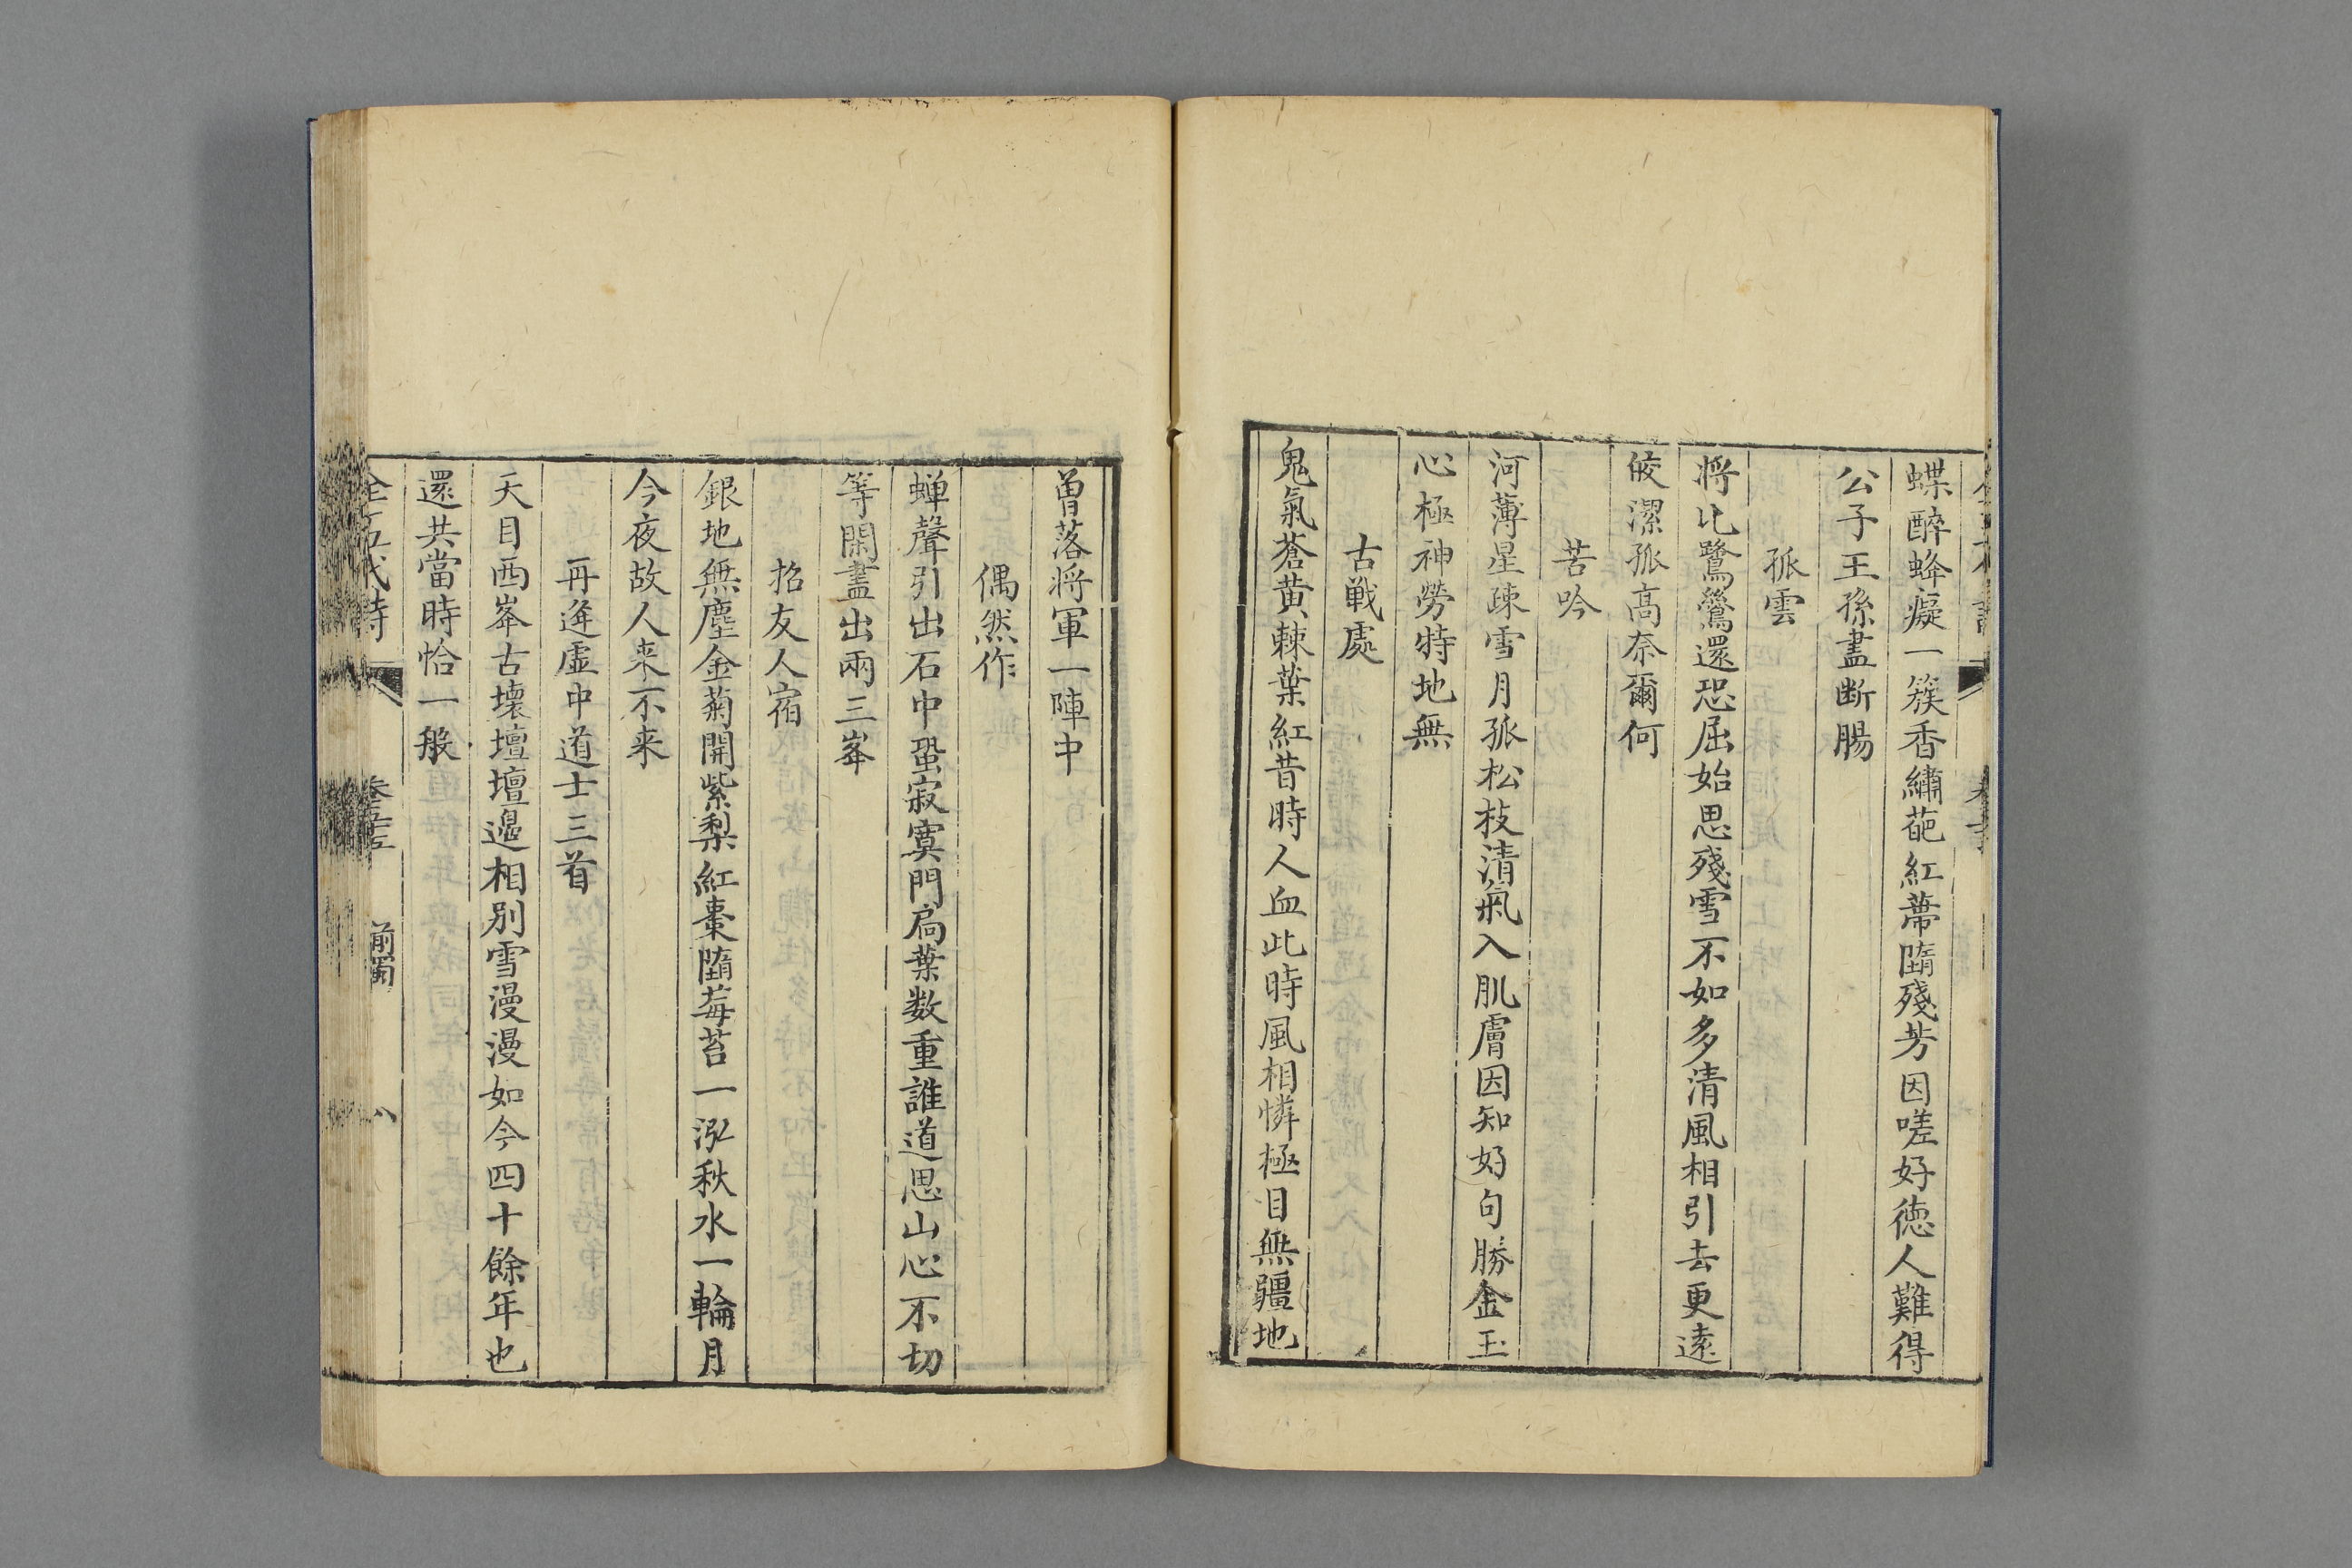 蝶醉蜂癡一簇香繡葩紅蔕墮殘芳因嗟好徳人難得
公子王孫盡断腸
孤雲
将比鷺鶿還恐屈始思殘雪不如多清風相引去更遠
皎潔孤高奈爾何
苦吟
河薄星疎雪月孤松枝清氣入肌膚因知好句勝金玉
心極神勞特地無
古戦處
鬼氣蒼黄棘葉紅昔時人血此時風相憐極目無疆地
曽落将軍一陣中
偶然作
蝉聲引出石中蛩寂寞門扃葉数重誰道思山心不切
等閑盡出兩三峯
招友人宿
銀地無塵金菊開紫梨紅棗墮莓苔一泓秋水一輪月
今夜故人来不来
再逢虚中道士三首
天目西峯古壊壇壇邉相别雪漫漫如今四十餘年也
還共當時恰一般
全五代詩
前蜀
八